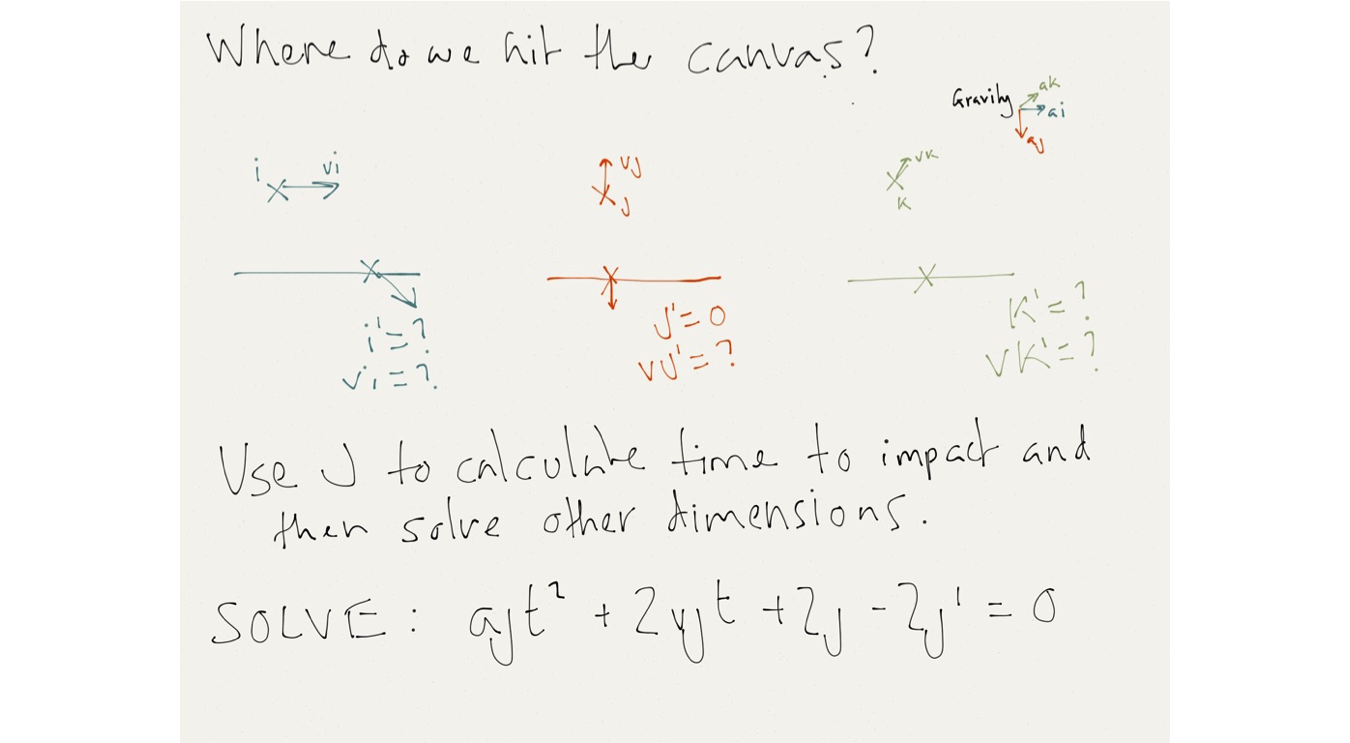 Where do we hit the canvas?
Gravity
ak
ai
aJ
i
vi
vJ
J
vK
K
i'=?
v'i=?
J'=0
vJ'=?
K'=?
vK'=?
Use J to calculate time to impact and
then solve other dimensions.
SOLVE: ajt² + 2vjt + 2j - 2j' = 0